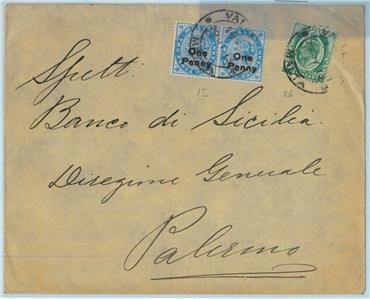 One
Penny
One
Penny
12
26
Spett.
Banco di Sicilia
Direzione Generale
Palermo